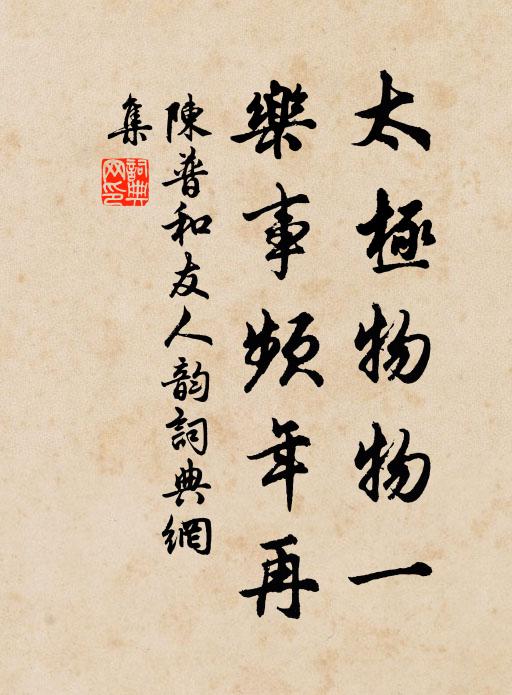 太極物物一
樂事頻年再
陳普和友人韵詞典網
集
詞典
网印